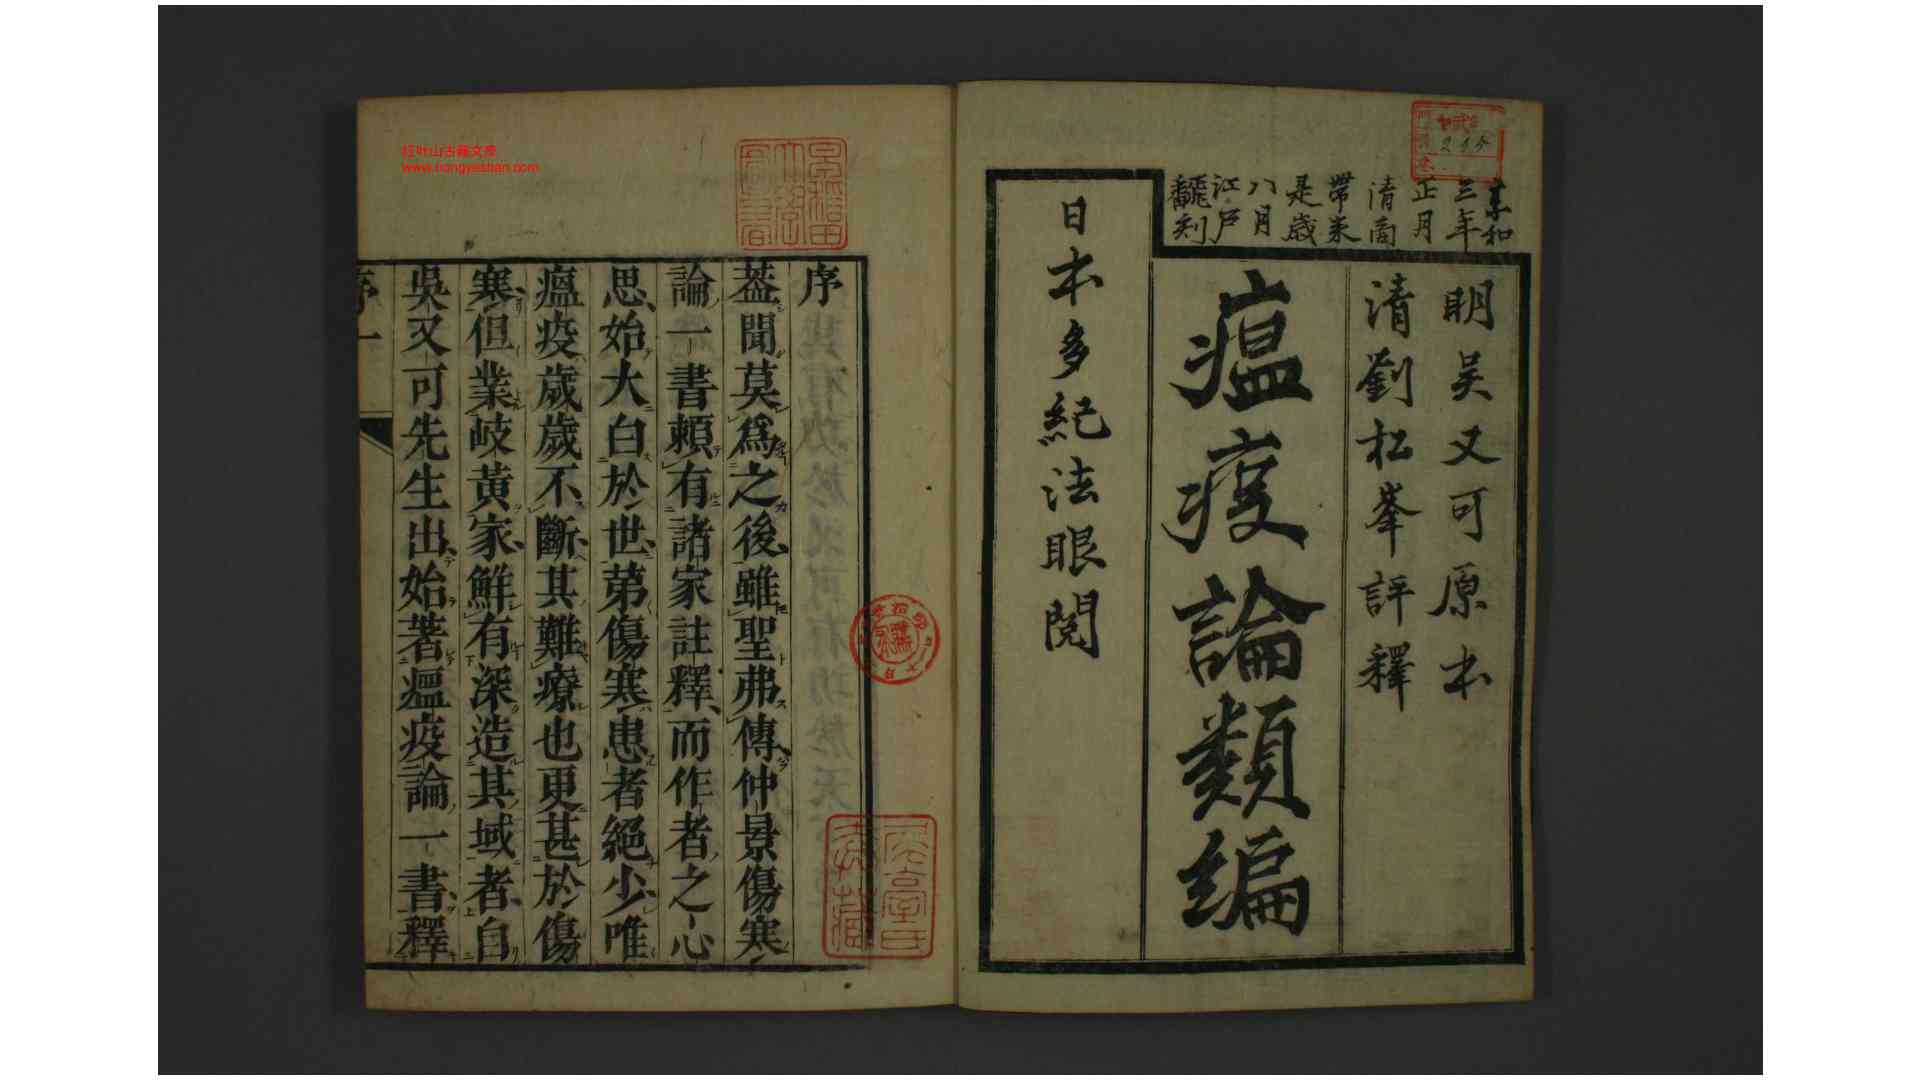 享和
三年
正月
清商
帶来
是歳
八月
江戸
飜刻
明吴又可原本
清劉松峯評釋
瘟疫論類編
日本多紀法眼閲
序
葢聞莫爲之後雖聖弗傳仲景傷寒
論一書頼有諸家註釋而作者之心
思始大白於世第傷寒患者絕少唯
瘟疫歲歲不斷其難療也更甚於傷
寒但業岐黄家鮮有深造其域者自
吳又可先生出始著瘟疫論一書釋
序一
红叶山古籍文库
www.hongyeshan.com